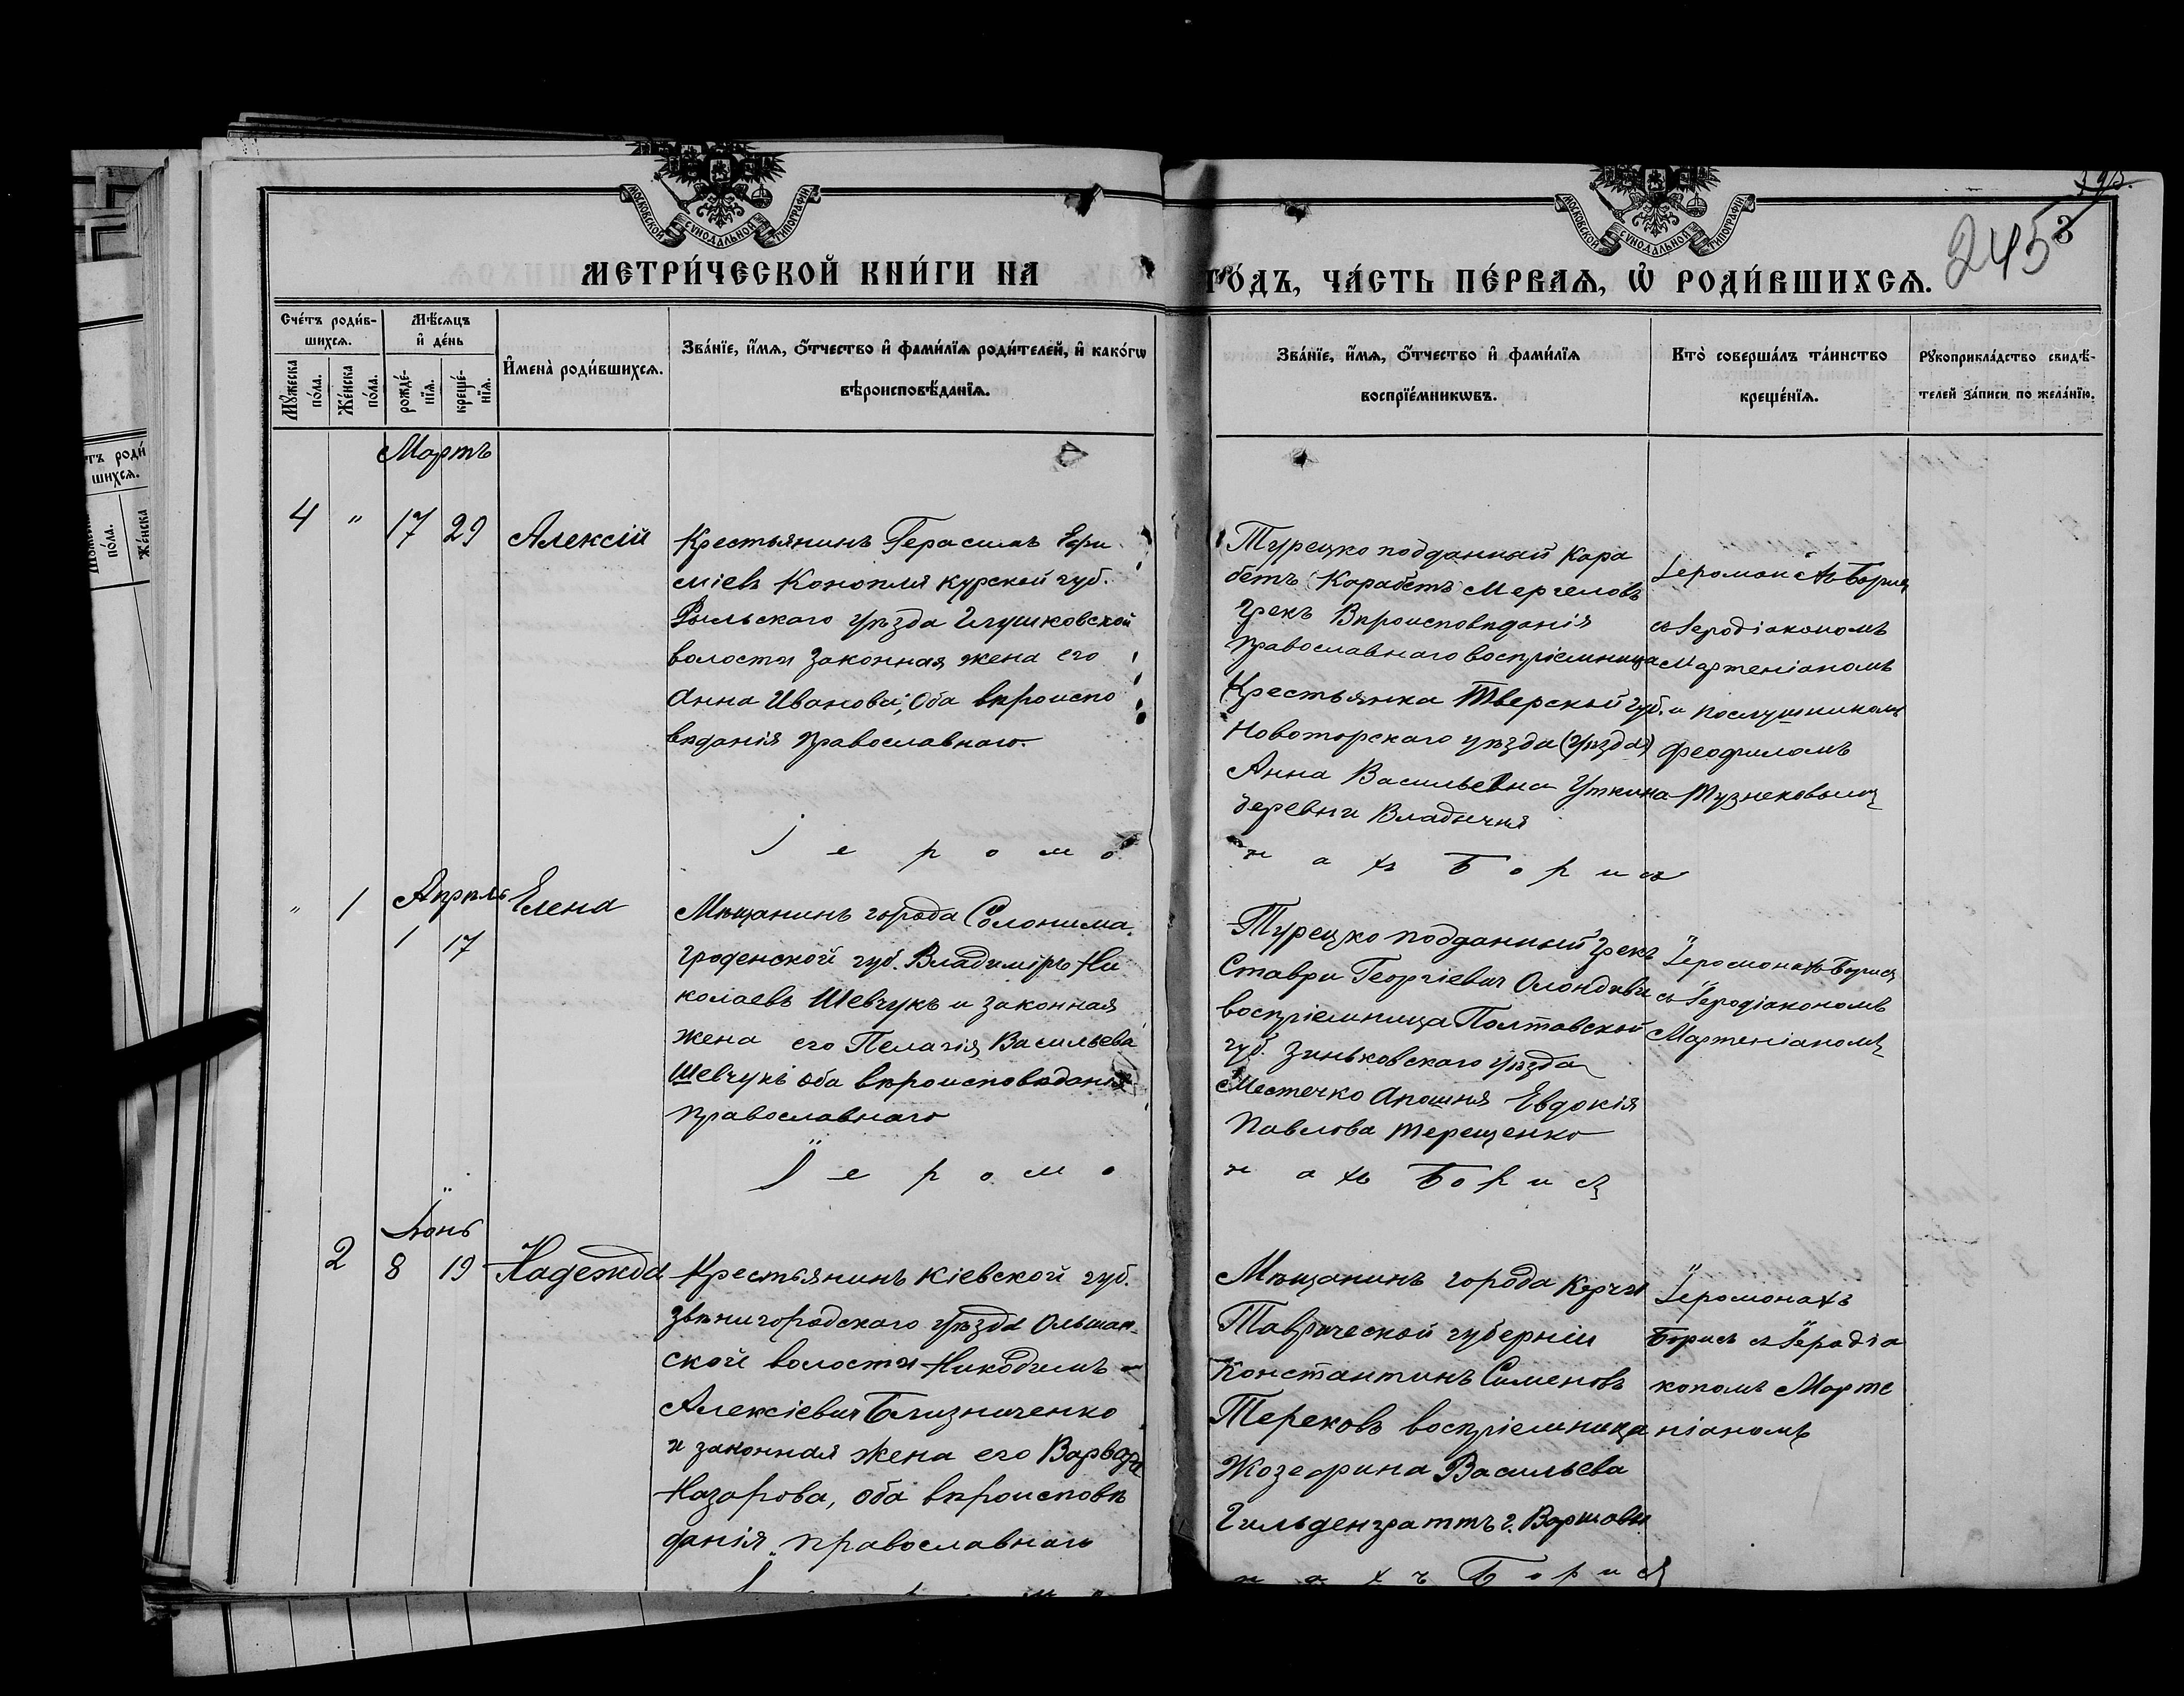 МОСКОВСКОЙ СѴНОДАЛЬНОЙ ТИПОГРАФІИ
МОСКОВСКОЙ СѴНОДАЛЬНОЙ ТИПОГРАФІИ
245
8
МЕТРИ́ЧЕСКОЙ КНИ́ГИ НА
ГО́ДЪ, ЧА́СТЬ ПЕ́РВАѦ, Ѡ҆ РОДИ́ВШИХСѦ.
Сче́тъ роди́в-
шихсѧ.
Мꙋ́жеска по́ла.
Же́нска по́ла.
Мѣ́сѧцъ
и҆ де́нь
рожде́-нїѧ.
креще́-нїѧ.
И҆мена̀ роди́вшихсѧ.
Зва́нїе, и҆́мѧ, ѻ҆́тчество и҆ фами́лїѧ роди́телей, и҆ како́гѡ
вѣроисповѣ́данїѧ.
Зва́нїе, и҆́мѧ, ѻ҆́тчество и҆ фами́лїѧ
воспрїе́мникѡвъ.
Кто̀ соверша́лъ та́инство
креще́нїѧ.
Рꙋкоприкла́дство свидѣ́-
телей за́писи по жела́нїю.
Мартъ
4 " 17 29 Алексій
Крестьянинъ Герасимъ Ефи
міевъ Конопля Курской губ.
Рыльскаго уѣзда Глушковской
волости законная жена его
Анна Иванова, Оба вѣроиспо
вѣданія православнаго.
Турецко подданный Кара
бетъ (Карабетъ) Мергеловъ
Грекъ Вѣроисповѣданія
православнаго воспріемница
Крестьянка Тверской губ.
Новоторского уѣзда (уѣзда)
Анна Васильевна Уткина
деревни Владычня
Іеромонахъ Борисъ
съ Іеродіакономъ
Мартеніаномъ
и послушникомъ
Феофиломъ
Іеромо
нахъ Борисъ
" 1 Апрѣль Елена
1 17
Мѣщанинъ города Слонима
Гроденской губ. Владиміръ Ни
колаевъ Шевчукъ и законная
жена его Пелагія Васильева
Шевчукъ оба вѣроисповѣданія
православнаго
Турецко подданный Грекъ
Ставри Георгіевич
воспріемница Полтавской
губ. Зиньковскаго уѣзда
Местечко Опошня Евдокія
Павлова Терещенко
Іеромонахъ Борисъ
съ Іеродіакономъ
Мартеніаномъ
Іеромо
нахъ Борисъ
Іюнь
2 8 19 Надежда
Крестьянинъ Кіевской губ.
Звенигородскаго уѣзда Ольшан-
ской волости Никодимъ
Алексіевич Близниченко
и законная жена его Варвара
Назарова, оба вѣроисповѣ
данія православнаго
Мѣщанинъ города Керчи
Таврической губерніи
Константинъ Сименовъ
Терековъ воспріемница
Жозефина Васильева
Гильденгаттъ г. Варшавы
Іеромонахъ
Борисъ съ Іеродіа
кономъ Марте
ніаномъ
Іеромо
нахъ Борисъ